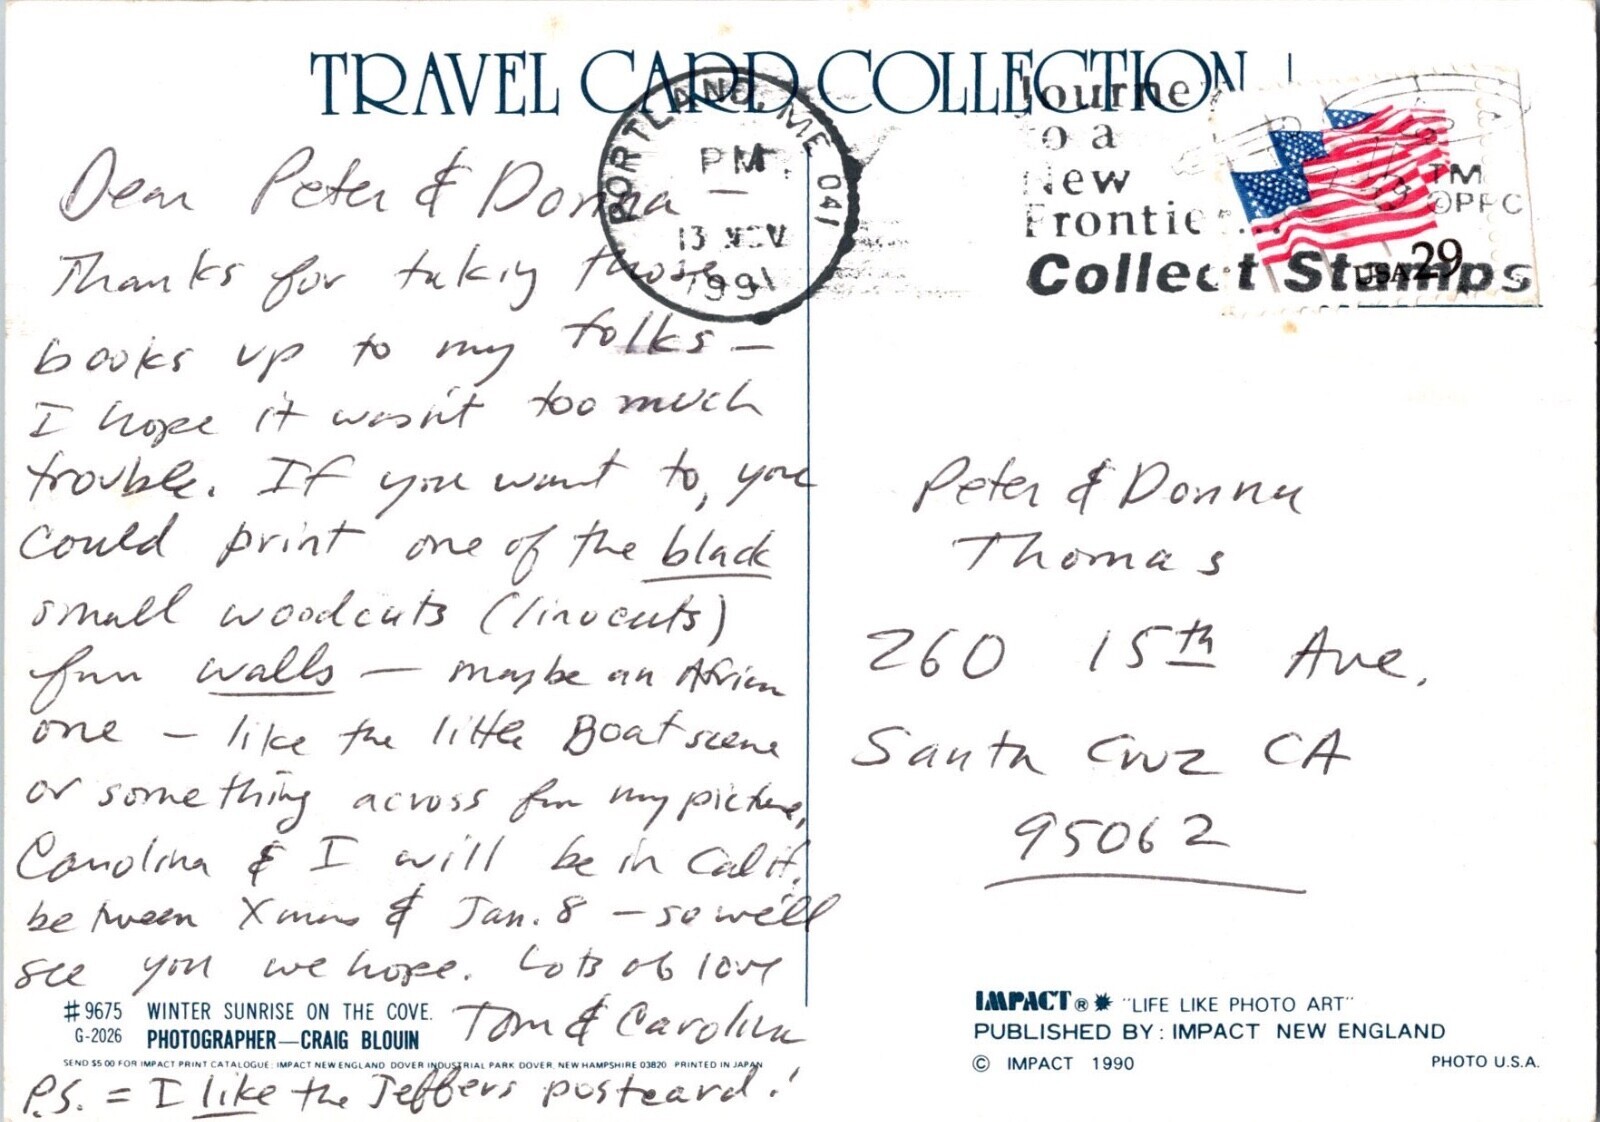 TRAVEL CARD COLLECTION
PORTLAND, ME 041
PM
13 NOV
1991
Journey
to a
New
Frontier...
Collect Stamps
TM
©PFC
USA 29
Dear Peter & Donna
Thanks for taking those
books up to my folks –
I hope it wasn't too much
trouble. If you want to, you
could print one of the black
small woodcuts (linocuts)
from walls – maybe an African
one – like the little Boat scene
or something across from my picture,
Carolina & I will be in Calif.
between Xmas & Jan. 8 – so we'll
see you we hope. Lots of love
Tom & Carolina
P.S. = I like the Jeffers postcard!
Peter & Donna
Thomas
260 15th Ave.
Santa Cruz CA
95062
#9675 WINTER SUNRISE ON THE COVE.
G-2026 PHOTOGRAPHER—CRAIG BLOUIN
SEND $5.00 FOR IMPACT PRINT CATALOGUE: IMPACT NEW ENGLAND DOVER INDUSTRIAL PARK DOVER, NEW HAMPSHIRE 03820 PRINTED IN JAPAN
IMPACT® "LIFE LIKE PHOTO ART"
PUBLISHED BY: IMPACT NEW ENGLAND
© IMPACT 1990
PHOTO U.S.A.